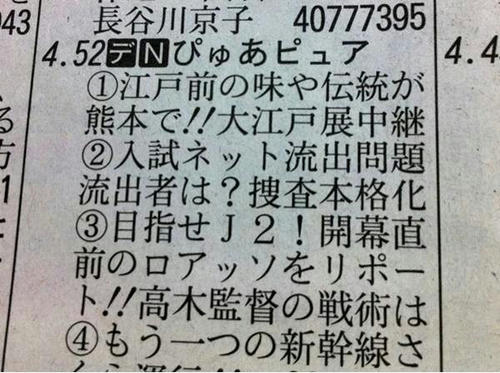 943
長谷川京子 40777395
4.52 デNぴゅあピュア
4.4
①江戸前の味や伝統が
熊本で!!大江戸展中継
②入試ネット流出問題
流出者は?捜査本格化
③目指せJ2!開幕直
前のロアッソをリポー
ト!!高木監督の戦術は
④もう一つの新幹線さ